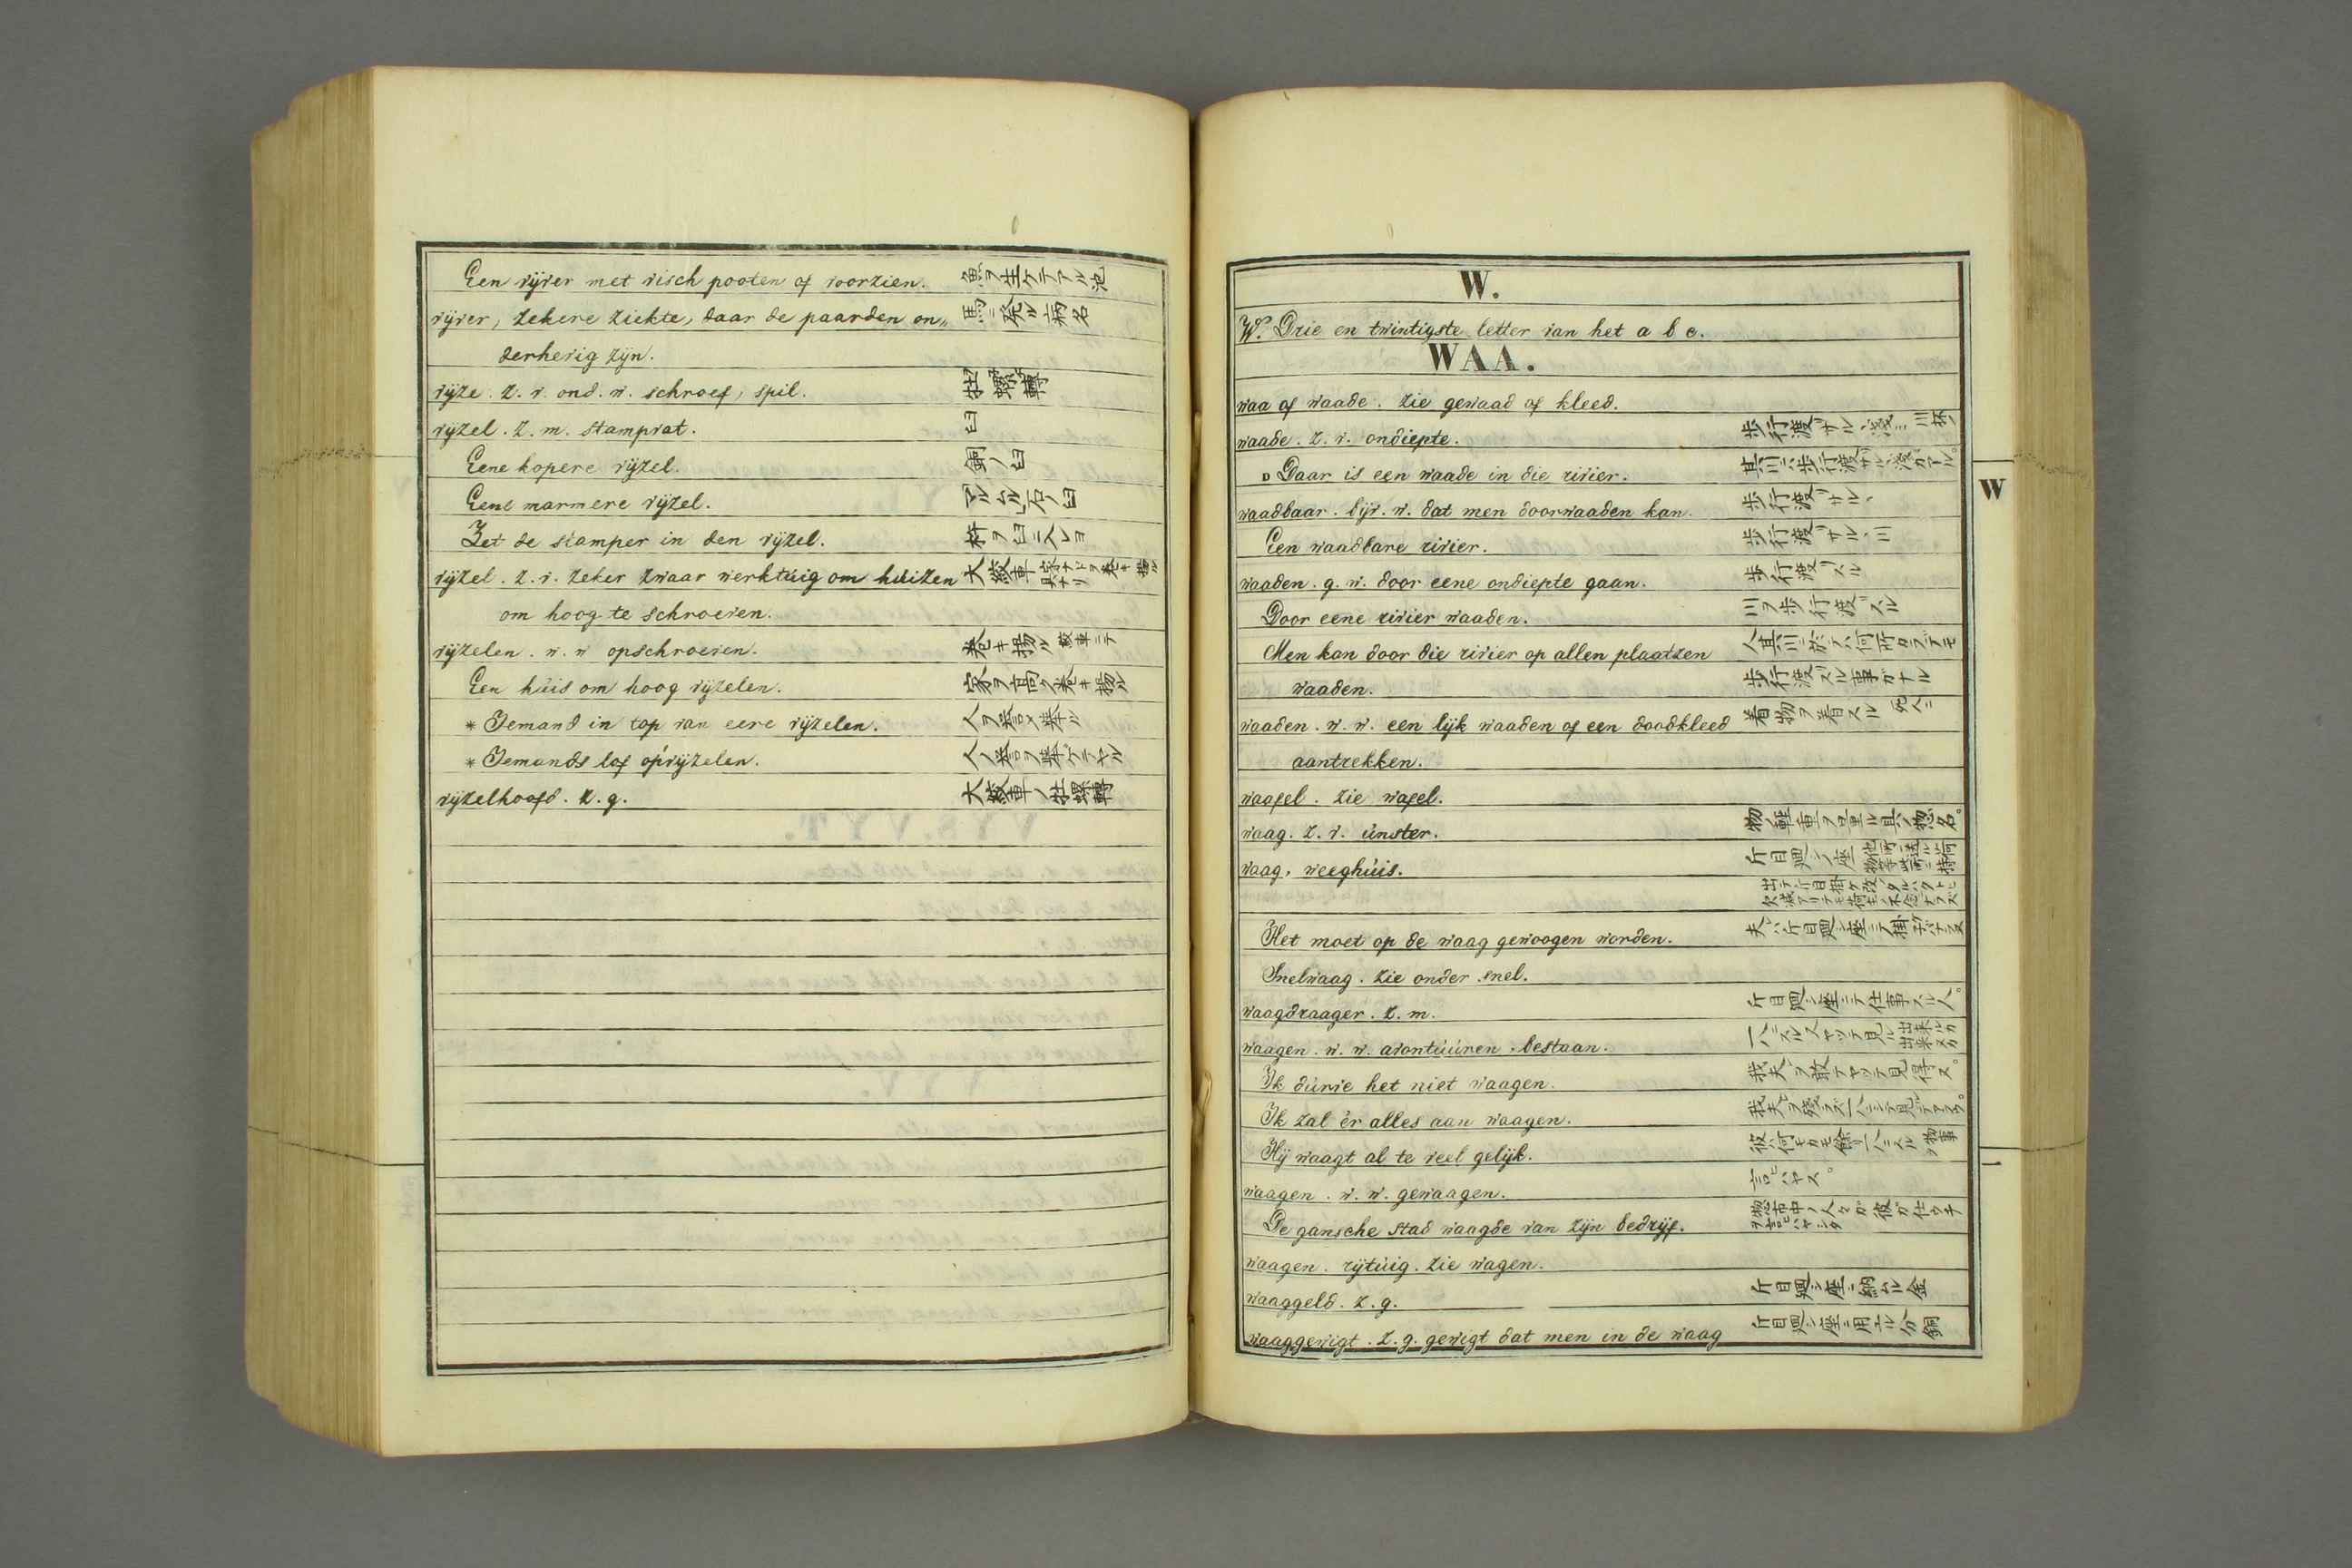 Een vijver met visch pooten of voorzien. 魚ヲ生ケテアル池
vijver, zekere ziekte, daar de paarden on„ 馬ニ発ル病名
derhevig zijn.
vijze. z. v. ond. w. schroef, spil. 牡螺轉
vijzel. z. m. stampvat. 臼
Eene kopere vijzel. 銅ノ臼
Eene marmere vijzel. マルムル石ノ臼
Zet de stamper in den vijzel. 杵ヲ臼ニ入レヨ
vijzel. z. v. zeker zwaar werktuig om huizen 大絞車 家ナドヲ巻キ揚ル具ナリ
om hoog te schroeven.
vijzelen. w. w opschroeven. 巻キ揚ル 絞車ニテ
Een huis om hoog vijzelen. 家ヲ高ク巻キ揚ル
* Iemand in top van eere vijzelen. 人ヲ誉メ挙ル
* Iemands lof opvijzelen. 人ノ誉ヲ挙ゲテヤル
vijzelhoofd. z. g. 大絞車ノ牡螺轉
W.
W. Drie en twintigste letter van het a b c.
WAA.
waa of waade. zie gewaad of kleed.
waade. z. v. ondiepte. 歩行渡リサルヽ浅ミ 川抔ノ
Daar is een waade in die rivier. 其川ニハ歩行渡リサルヽ浅ミガアル。
waadbaar. bijv. w. dat men doorwaaden kan. 歩行渡リサルヽ
Een waadbare rivier. 歩行渡リサルヽ川
waaden. g. w. door eene ondiepte gaan. 歩行渡リスル
Door eene rivier waaden. 川ヲ歩行渡リスル
Men kan door die rivier op allen plaatzen 人其川ニ於テハ何所カラデモ
waaden. 歩行渡リスル事ガナル
waaden. w. w. een lijk waaden of een doodkleed 着物ヲ着スル 死人ニ
aantrekken.
waafel. zie wafel.
waag. z. v. unster. 物ノ軽重ヲ量ル具ノ惣名。
waag, weeghuis. 斤目廻シ座
Het moet op de waag gewoogen worden. 夫ハ斤目廻シ座ニテ掛ケ子バナラヌ
Snelwaag. zie onder snel.
waagdraager. z. m. 斤目廻シ座ニテ仕事スル人。
waagen. w. w. avontuuren, bestaan. 一ハニスル ヤツテ見ル 出来ルカ出来ヌカ
Ik durve het niet waagen. 我夫レヲ敢テヤツテ見得ヌ。
Ik zal er alles aan waagen.
Hij waagt al te veel gelijk. 彼ハ何モカモ餘リ一ハニスル 物事ヲ
waagen. w. w. gewaagen. 言ヒハヤス。
De gansche stad waagde van zijn bedrijf. 惣市中ノ人々ガ彼ガ仕ウチヲ言ヒハヤシタ
waagen. rijtuig. zie wagen.
waaggeld. z. g. 斤目廻シ座ニ納ムル金
waaggewigt. z. g. gewigt dat men in de waag 斤目廻シ座ニ用エル分銅
W
一